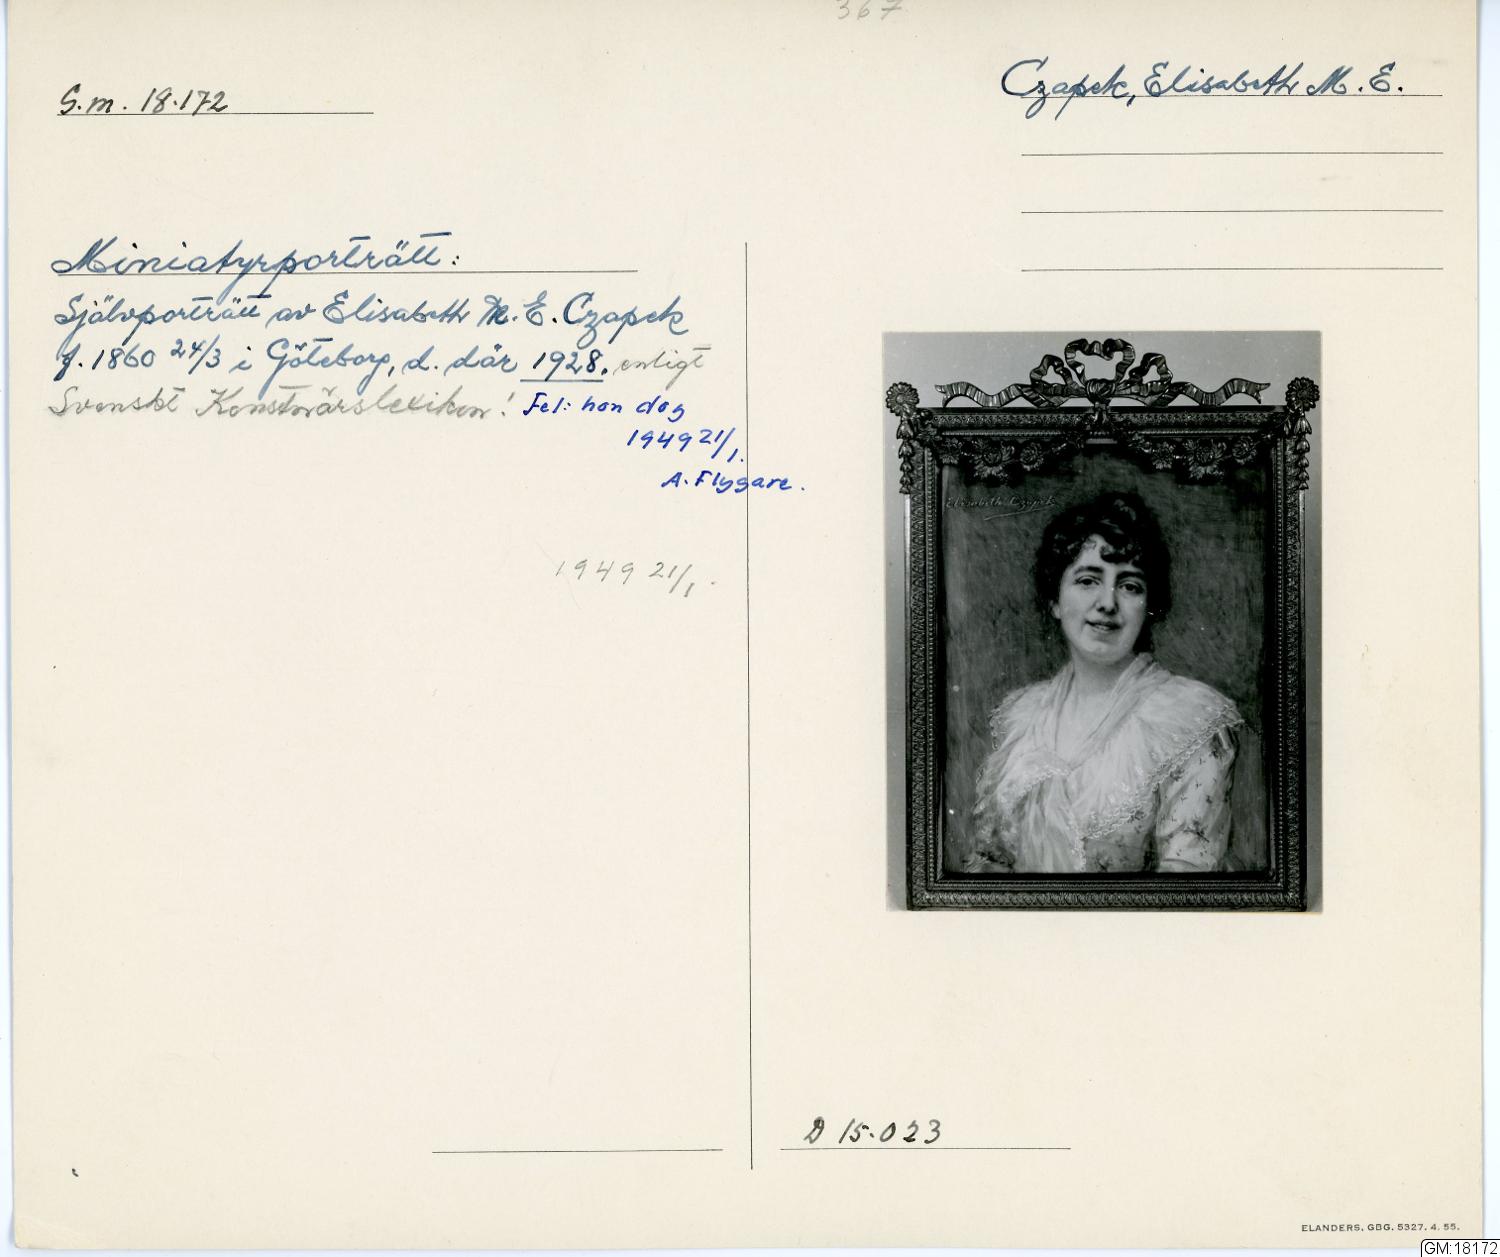 367
G.m. 18.172
Czapek, Elisabeth M. E.
Miniatyrporträtt:
Självporträtt av Elisabeth M. E. Czapek
f. 1860 24/3 i Göteborg, d. där 1928. enligt
Svenskt Konstnärslexikon! Fel: hon dog
1949 21/1.
A. Flygare.
1949 21/1.
Elisabeth Czapek
D 15.023
ELANDERS, GBG. 5327. 4. 55.
GM:18172